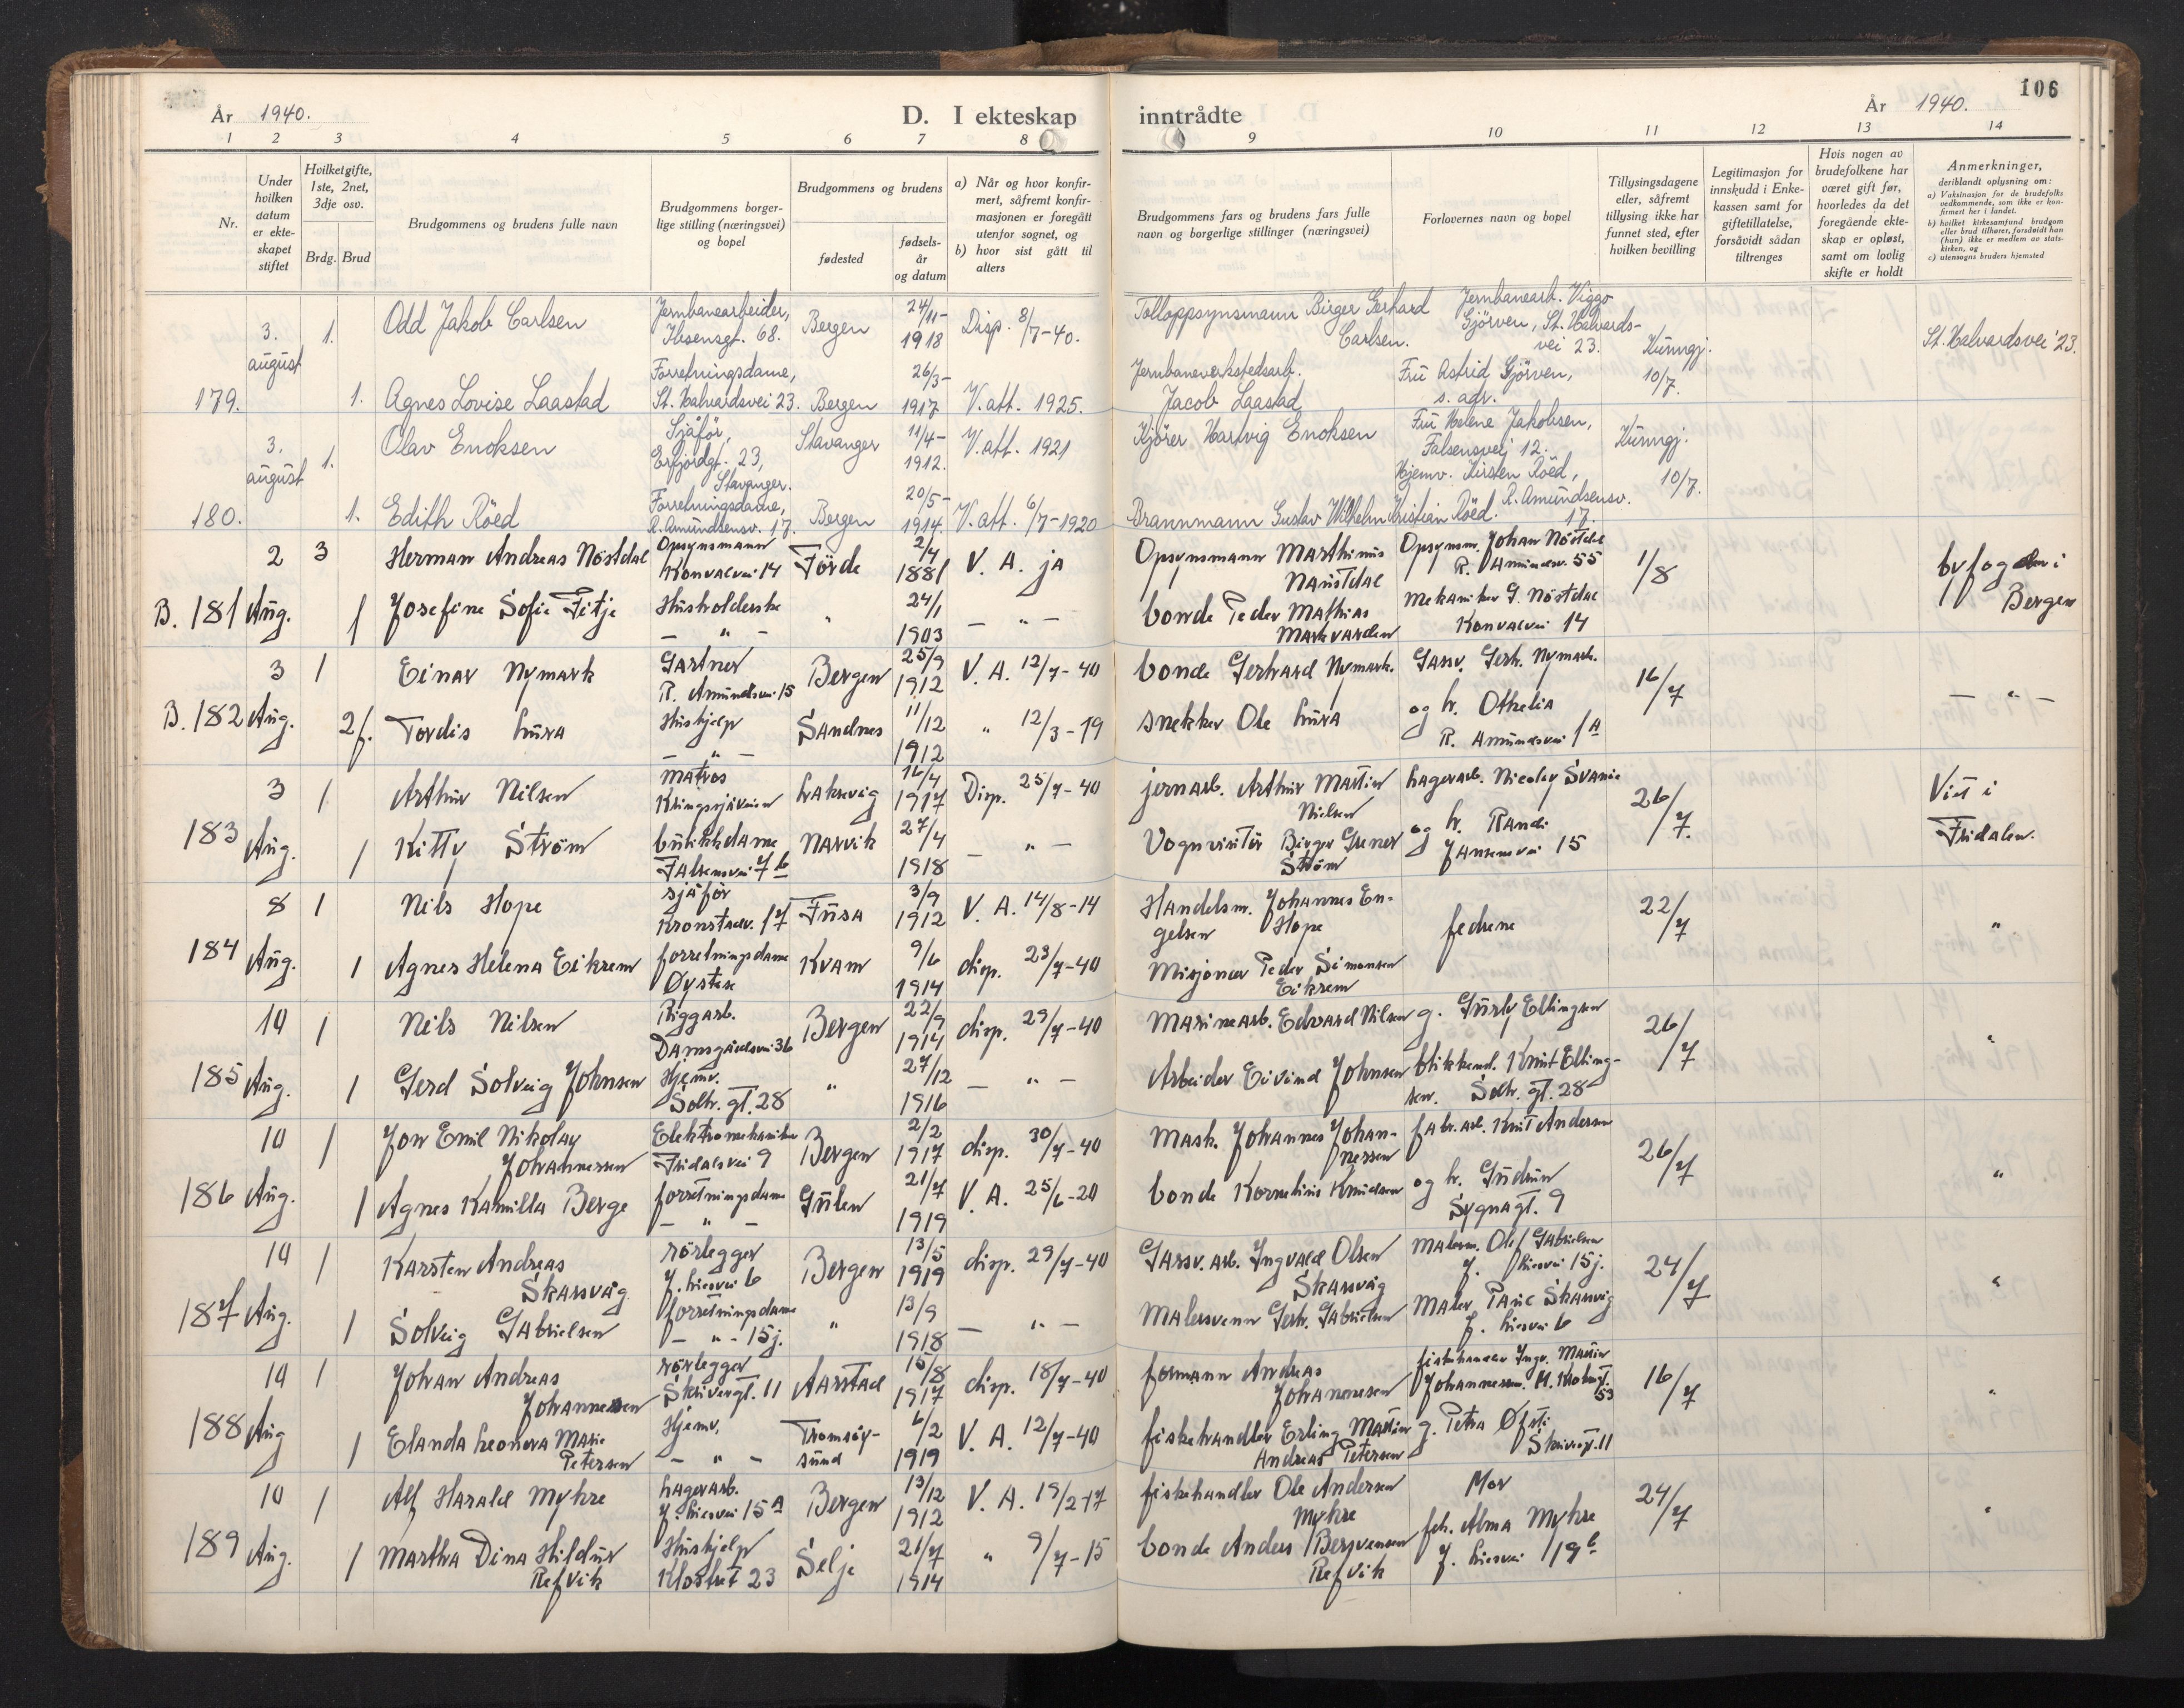 106
År 1940.
D. I ekteskap inntrådte
År 1940.
1 2 3 4 5 6 7 8 9 10 11 12 13 14
Nr.
Under hvilken datum er ekteskapet stiftet
Hvilket gifte, 1ste, 2net, 3dje osv.
Brdg. Brud
Brudgommens og brudens fulle navn
Brudgommens borgerlige stilling (næringsvei) og bopel
Brudgommens og brudens
fødested
fødselsår og datum
a) Når og hvor konfirmert, såfremt konfirmasjonen er foregått utenfor sognet, og
b) hvor sist gått til alters
Brudgommens fars og brudens fars fulle navn og borgerlige stillinger (næringsvei)
Forlovernes navn og bopel
Tillysingsdagene eller, såfremt tillysing ikke har funnet sted, efter hvilken bevilling
Legitimasjon for innskudd i Enkekassen samt for giftetillatelse, forsåvidt sådan tiltrenges
Hvis nogen av brudefolkene har været gift før, hvorledes da det foregående ekteskap er opløst, samt om lovlig skifte er holdt
Anmerkninger, deriblandt oplysning om:
a) Vaksinasjon for de brudefolks vedkommende, som ikke er konfirmert her i landet.
b) hvilket kirkesamfund brudgom eller brud tilhører, forsåvidt han (hun) ikke er medlem av statskirken, og
c) utensogns bruders hjemsted
3. august 1. Odd Jakob Carlsen Jernbanearbeider, Ibsensgt. 68. Bergen 24/11-1918 Disp. 8/7-40. Tolloppsynsmann Birger Gerhard Carlsen. Jernbanearb. Viggo Gjörven, St. Halvardsvei 23. Kunngj. 10/7. St. Halvardsvei 23.
179. 1. Agnes Lovise Laastad Forretningsdame, St. Halvardsvei 23. Bergen 26/3-1917 V. att. 1925. Jernbaneverkstedsarb. Jacob Laastad Fru Astrid Gjörven, s. adr.
3. august 1. Olav Enoksen Sjåför, Erfjordgt. 23, Stavanger. Stavanger 11/4-1912. V. att. 1921 Kjörer Hartvig Enoksen Fru Helene Jakobsen, Falsensvei 12. Kunngj. 10/7.
180. 1. Edith Röed Forretningsdame, R. Amundsensv. 17. Bergen 20/5-1914. V. att. 6/7-1920 Brannmann Gustav Wilhelm Kristian Röed. Hjemv. Kirsten Röed, R. Amundsensv. 17.
2 3 Herman Andreas Nöstdal Opsynsmann Konvalvei 14 Förde 2/4 1881 V. A. ja Opsynsmann Marthinus Naustdal Opsynsm. Johan Nöstdal R. Amundsv. 55 1/8 byfogden i Bergen
B. 181 Aug. 1 Josefine Sofie Fitje Husholderske - " - " 24/1 1903 - " - bonde Peder Mathias Markvarden Mekaniker G. Nöstdal Konvalvei 14
3 1 Einar Nymark Gartner R. Amundsvei 15 Bergen 25/9 1912 V. A. 12/7-40 bonde Gerhard Nymark. Garv. Gerh. Nymark. 16/7 - " -
B. 182 Aug. 2f. Tordis Lura Hushjelp - " - Sandnes 11/12 1912 " 12/3-19 snekker Ole Lura og h. Othelia R. Amundsvei 1A
3 1 Arthur Nilsen matros Klingsjåveien Laksevåg 16/4 1917 Disp. 25/7-40 jernarb. Arthur Martin Nielsen Lagerarb. Nicolay Svanøe 26/7. Viet i Fridalen.
183 Aug. 1 Kitty Ström butikkdame Falsensvei 7b Narvik 27/4 1918 - " - Vognvisitör Birger Grener Ström og h. Randi Jansensvei 15
8 1 Nils Hope sjåför Kronstadv. 17 Fusa 3/9 1912 V. A. 14/8-14 Handelsm. Johannes Engelsen Hope fedrene 22/7 "
184 Aug. 1 Agnes Helena Eikrem forretningsdame Øystese Kvam 9/6 1914 disp. 23/7-40 Misjonær Peder Simonsen Eikrem
10 1 Nils Nilsen Riggarb. Damsgårdsvei 36 Bergen 22/9 1914 disp. 29/7-40 Marinearb. Edvard Nilsen g. Gurly Ellingsen 26/7 "
185 Aug. 1 Gerd Solveig Johnsen Hjemv. Solh. gt. 28 " 27/12 1916 - " - Arbeider Eivind Johnsen blikkensl. Knut Ellingsen. Solh. gt. 28
10 1 Jon Emil Nikolay Johannessen Elektromekaniker Fridalsvei 9 Bergen 2/2 1917 disp. 30/7-40 Mask. Johannes Johannessen fabr. arb. Knut Andersen 26/7 "
186 Aug. 1 Agnes Kamilla Berge forretningsdame - " - Gulen 21/7 1919 V. A. 25/6-20 bonde Kornelius Knudsen og h. Gudrun Sygnagt. 9
10 1 Karsten Andreas Skarsvåg rörlegger J. Liesvei 6 Bergen 13/5 1919 disp. 29/7-40 Garv. arb. Ingvald Olsen Skarsvåg Malerm. Olaf Gabrielsen J. Liesvei 15j. 24/7 "
187 Aug. 1 Solveig Gabrielsen forretningsdame - " - 15j. " 13/9 1918 - " - Malersvenn Gerh. Gabrielsen Maler Paul Skarsvåg J. Liesvei 6
10 1 Johan Andreas Johannesen rörlegger Skrivergt. 11 Aarstad 15/8 1917 disp. 18/7-40 formann Andreas Johannesen fiskehandler Ingv. Martin Johannesen. M. Krohngt. 53 16/7 "
188 Aug 1 Elanda Leonora Marie Petersen Hjemv. - " - Tromsöysund 6/2 1919 V. A. 12/7-40 fiskehandler Erling Martin Andreas Petersen g. Petra Øfsti Skrivergt. 11
10 1 Alf Harald Myhre Lagerarb. J. Liesvei 15A Bergen 13/12 1912 V. A. 19/2-17 fiskehandler Ole Andersen Myhre Mor 24/7 "
189 Aug. 1 Martha Dina Hildur Refvik Hushjelp Klostret 23 Selje 21/7 1914 " 9/7-15 bonde Anders Bergvensen Refvik frk. Alma Myhre J. Liesvei 119b